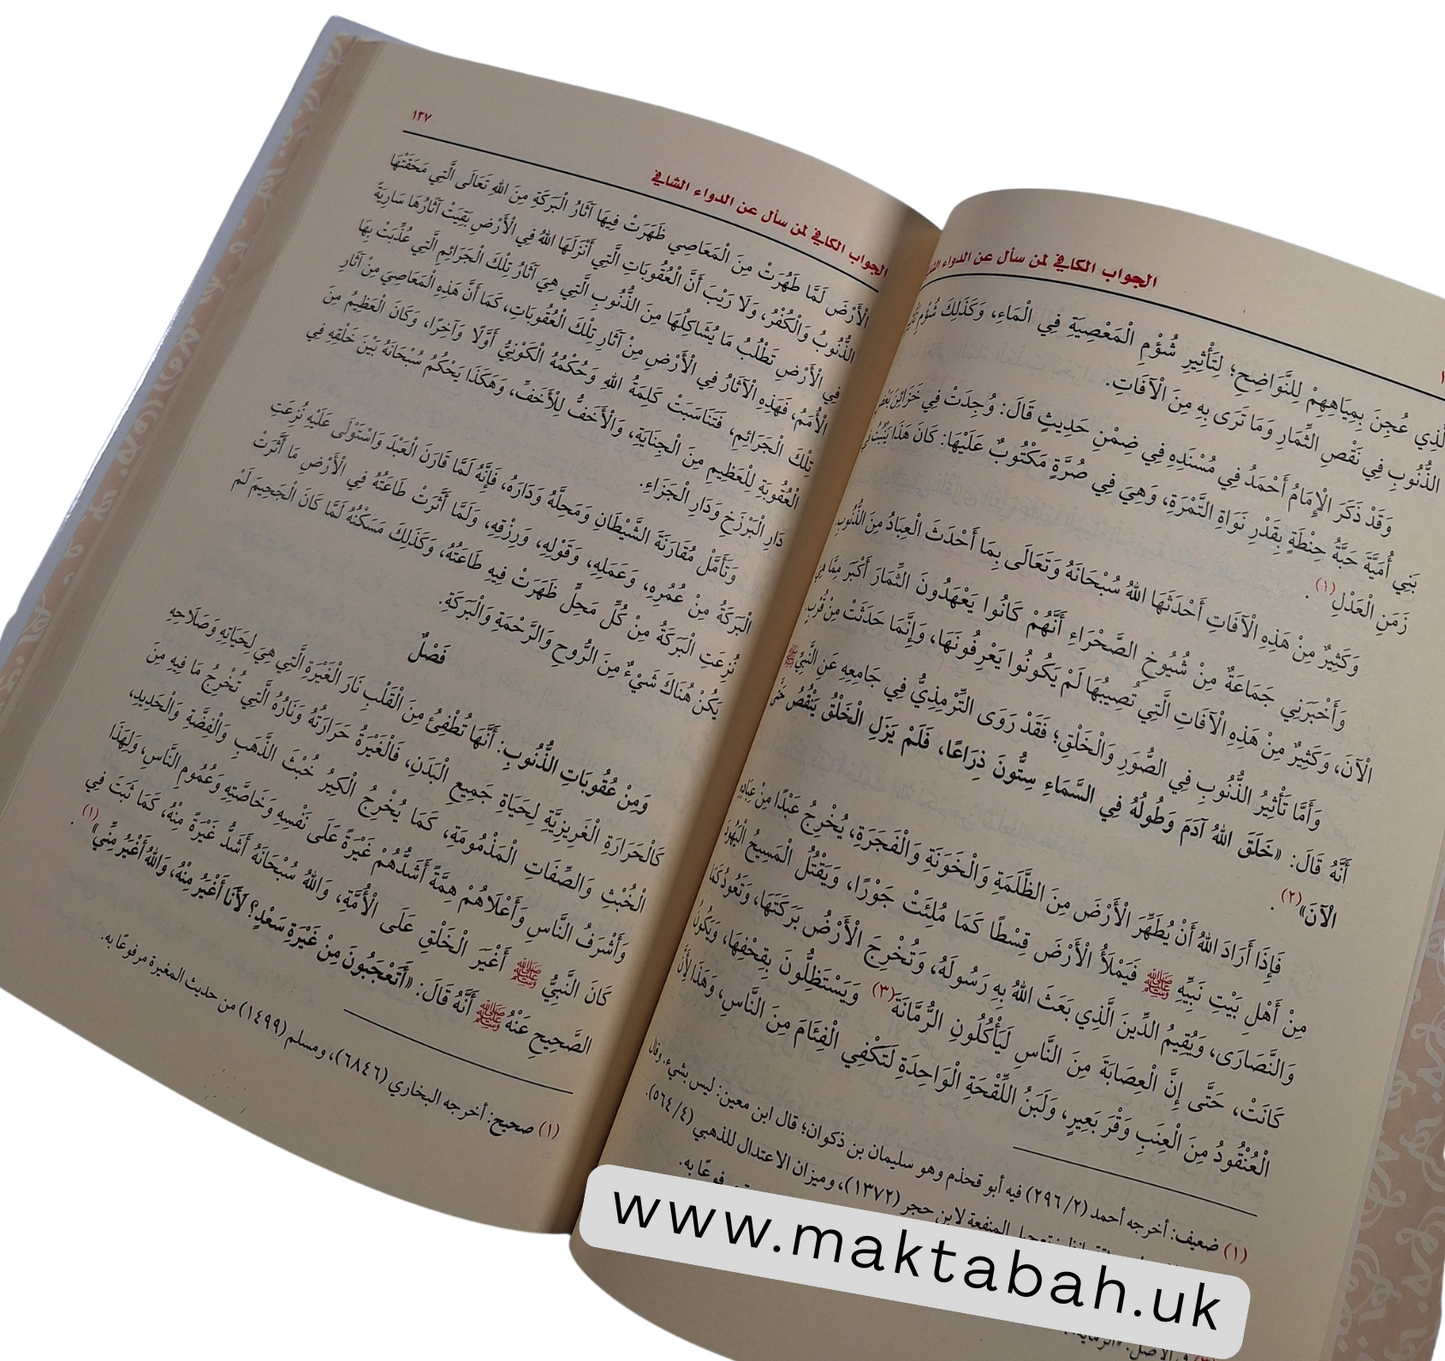 الجواب الكافي لمن سأل عن الدواء
الَّذِي عُجِنَ بِمِيَاهِهِمْ لِلنَّوَاضِحِ؛ لِتَأْثِيرِ شُؤْمِ الْمَعْصِيَةِ فِي الْمَاءِ، وَكَذَلِكَ شُؤْمُ
الذُّنُوبِ فِي نَقْصِ الثِّمَارِ وَمَا تَرَى بِهِ مِنَ الْآفَاتِ.
وَقَدْ ذَكَرَ الْإِمَامُ أَحْمَدُ فِي مُسْنَدِهِ فِي ضِمْنِ حَدِيثٍ قَالَ: وُجِدَتْ فِي خَزَائِنِ بَعْضِ
بَنِي أُمَيَّةَ حَبَّةُ حِنْطَةٍ بِقَدْرِ نَوَاةِ التَّمْرَةِ، وَهِيَ فِي صُرَّةٍ مَكْتُوبٌ عَلَيْهَا: كَانَ هَذَا يَنْبُتُ فِي
زَمَنِ الْعَدْلِ(١).
وَكَثِيرٌ مِنْ هَذِهِ الْآفَاتِ أَحْدَثَهَا اللهُ سُبْحَانَهُ وَتَعَالَى بِمَا أَحْدَثَ الْعِبَادُ مِنَ الذُّنُوبِ.
وَأَخْبَرَنِي جَمَاعَةٌ مِنْ شُيُوخِ الصَّحْرَاءِ أَنَّهُمْ كَانُوا يَعْهَدُونَ الثِّمَارَ أَكْبَرَ مِمَّا هِيَ
الْآنَ، وَكَثِيرٌ مِنْ هَذِهِ الْآفَاتِ الَّتِي تُصِيبُهَا لَمْ يَكُونُوا يَعْرِفُونَهَا، وَإِنَّمَا حَدَثَتْ مِنْ قُرْبٍ.
وَأَمَّا تَأْثِيرُ الذُّنُوبِ فِي الصُّوَرِ وَالْخَلْقِ؛ فَقَدْ رَوَى التِّرْمِذِيُّ فِي جَامِعِهِ عَنِ النَّبِيِّ ﷺ
أَنَّهُ قَالَ: «خَلَقَ اللهُ آدَمَ وَطُولُهُ فِي السَّمَاءِ سِتُّونَ ذِرَاعًا، فَلَمْ يَزَلِ الْخَلْقُ يَنْقُصُ حَتَّى
الْآنَ»(٢).
فَإِذَا أَرَادَ اللهُ أَنْ يُطَهِّرَ الْأَرْضَ مِنَ الظَّلَمَةِ وَالْخَوَنَةِ وَالْفَجَرَةِ، يُخْرِجُ عَبْدًا مِنْ عِبَادِهِ
مِنْ أَهْلِ بَيْتِ نَبِيِّهِ ﷺ فَيَمْلَأُ الْأَرْضَ قِسْطًا كَمَا مُلِئَتْ جَوْرًا، وَيَقْتُلُ الْمَسِيحُ الْيَهُودَ
وَالنَّصَارَى، وَيُقِيمُ الدِّينَ الَّذِي بَعَثَ اللهُ بِهِ رَسُولَهُ، وَتُخْرِجَ الْأَرْضُ بَرَكَتَهَا، وَتَعُودُ كَمَا
كَانَتْ، حَتَّى إِنَّ الْعِصَابَةَ مِنَ النَّاسِ لَيَأْكُلُونَ الرُّمَّانَةَ(٣) وَيَسْتَظِلُّونَ بِقِحْفِهَا، وَيَكُونُ
الْعُنْقُودُ مِنَ الْعِنَبِ وَقْرَ بَعِيرٍ، وَلَبَنُ اللِّقْحَةِ الْوَاحِدَةِ لَتَكْفِي الْفِئَامَ مِنَ النَّاسِ، وَهَذَا لِأَنَّ
(١) ضعيف: أخرجه أحمد (٢/ ٢٩٦) فيه أبو قحذم وهو سليمان بن ذكوان؛ قال ابن معين: ليس بشيء. وقال
تعجيل المنفعة لابن حجر (١٣٧٢)، وميزان الاعتدال للذهبي (٤/ ٥٦٤).
مرفوعًا به.
(٣) في الأصل: «الرمانة».
الجواب الكافي لمن سأل عن الدواء الشافي
١٣٧
الْأَرْضَ لَمَّا طَهُرَتْ مِنَ الْمَعَاصِي ظَهَرَتْ فِيهَا آثَارُ الْبَرَكَةِ مِنَ اللهِ تَعَالَى الَّتِي مَحَقَتْهَا
الذُّنُوبُ وَالْكُفْرُ، وَلَا رَيْبَ أَنَّ الْعُقُوبَاتِ الَّتِي أَنْزَلَهَا اللهُ فِي الْأَرْضِ بَقِيَتْ آثَارُهَا سَارِيَةً
فِي الْأَرْضِ تَطْلُبُ مَا يُشَاكِلُهَا مِنَ الذُّنُوبِ الَّتِي هِيَ آثَارُ تِلْكَ الْجَرَائِمِ الَّتِي عُذِّبَتْ بِهَا
الْأُمَمُ، فَهَذِهِ الْآثَارُ فِي الْأَرْضِ مِنْ آثَارِ تِلْكَ الْعُقُوبَاتِ، كَمَا أَنَّ هَذِهِ الْمَعَاصِيَ مِنْ آثَارِ
تِلْكَ الْجَرَائِمِ، فَتَنَاسَبَتْ كَلِمَةُ اللهِ وَحُكْمُهُ الْكَوْنِيُّ أَوَّلًا وَآخِرًا، وَكَانَ الْعَظِيمُ مِنَ
الْعُقُوبَةِ لِلْعَظِيمِ مِنَ الْجِنَايَةِ، وَالْأَخَفُّ لِلْأَخَفِّ، وَهَكَذَا يَحْكُمُ سُبْحَانَهُ بَيْنَ خَلْقِهِ فِي
دَارِ الْبَرْزَخِ وَدَارِ الْجَزَاءِ.
وَتَأَمَّلْ مُقَارَنَةَ الشَّيْطَانِ وَمَحِلَّهُ وَدَارَهُ، فَإِنَّهُ لَمَّا قَارَنَ الْعَبْدَ وَاسْتَوْلَى عَلَيْهِ نُزِعَتِ
الْبَرَكَةُ مِنْ عُمُرِهِ، وَعَمَلِهِ، وَقَوْلِهِ، وَرِزْقِهِ، وَلَمَّا أَثَّرَتْ طَاعَتُهُ فِي الْأَرْضِ مَا أَثَّرَتْ
نُزِعَتِ الْبَرَكَةُ مِنْ كُلِّ مَحِلٍّ ظَهَرَتْ فِيهِ طَاعَتُهُ، وَكَذَلِكَ مَسْكَنُهُ لَمَّا كَانَ الْجَحِيمَ لَمْ
يَكُنْ هُنَاكَ شَيْءٌ مِنَ الرُّوحِ وَالرَّحْمَةِ وَالْبَرَكَةِ.
فَصْلٌ
وَمِنْ عُقُوبَاتِ الذُّنُوبِ: أَنَّهَا تُطْفِئُ مِنَ الْقَلْبِ نَارَ الْغَيْرَةِ الَّتِي هِيَ لِحَيَاتِهِ وَصَلَاحِهِ
كَالْحَرَارَةِ الْغَرِيزِيَّةِ لِحَيَاةِ جَمِيعِ الْبَدَنِ، فَالْغَيْرَةُ حَرَارَتُهُ وَنَارُهُ الَّتِي تُخْرِجُ مَا فِيهِ مِنَ
الْخُبْثِ وَالصِّفَاتِ الْمَذْمُومَةِ، كَمَا يُخْرِجُ الْكِيرُ خُبْثَ الذَّهَبِ وَالْفِضَّةِ وَالْحَدِيدِ،
وَأَشْرَفُ النَّاسِ وَأَعْلَاهُمْ هِمَّةً أَشَدُّهُمْ غَيْرَةً عَلَى نَفْسِهِ وَخَاصَّتِهِ وَعُمُومِ النَّاسِ، وَلِهَذَا
كَانَ النَّبِيُّ ﷺ أَغْيَرَ الْخَلْقِ عَلَى الْأُمَّةِ، وَاللهُ سُبْحَانَهُ أَشَدُّ غَيْرَةً مِنْهُ، كَمَا ثَبَتَ فِي
الصَّحِيحِ عَنْهُ ﷺ أَنَّهُ قَالَ: «أَتَعْجَبُونَ مِنْ غَيْرَةِ سَعْدٍ؟ لَأَنَا أَغْيَرُ مِنْهُ، وَاللهُ أَغْيَرُ مِنِّي»(١).
(١) صحيح: أخرجه البخاري (٦٨٤٦)، ومسلم (١٤٩٩) من حديث المغيرة مرفوعًا به.
www.maktabah.uk